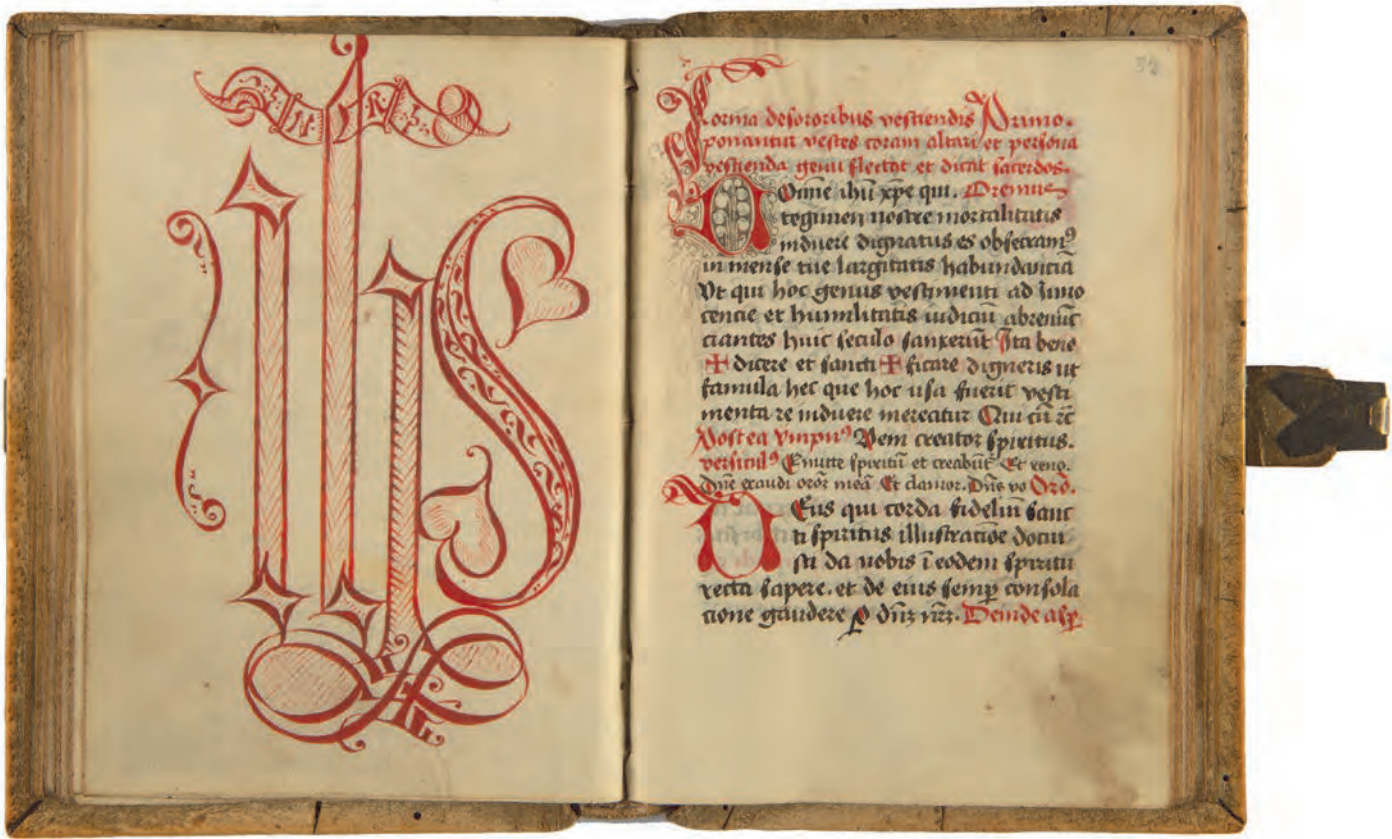 INRI
ihs
52
Forma de sororibus vestiendis Primo.
ponantur vestes coram altari et persona
vestienda genu flectat et dicat sacerdos.
Domine ihu xpe qui. Oremus
tegimen nostre mortalitatis
induere dignatus es obsecramꝰ
inmense tue largitatis habundancia
Vt qui hoc genus vestimenti ad inno
cencie et humilitatis iudiciū abrenūc
ciantes huic seculo sanxerūt Ita bene
✠ dicere et sancti ✠ ficare digneris ut
famula hec que hoc usa fuerit vesti
menta te induere mereatur Qui cū ꝛc
Postea ympnꝰ Veni creator spiritus.
versiculꝰ Emitte spiritū et creabūt Et reno.
Dne exaudi oroꝛ meā Et clamor. Dns vo Oro.
Deus qui corda fideliū sanc
ti spiritus illustracioē docui
sti da nobis ī eodem spiritu
recta sapere. et de eius semp consola
cione gaudere ꝑ dnꝫ nrꝫ. Deinde asꝑ